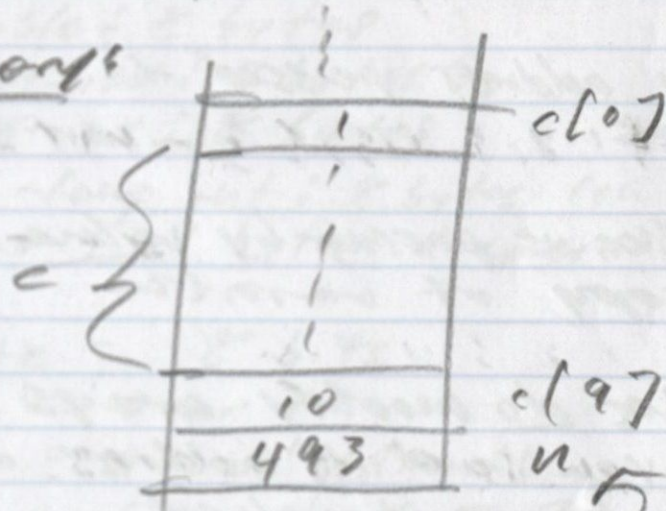 c[0]
c
10 c[9]
493 n